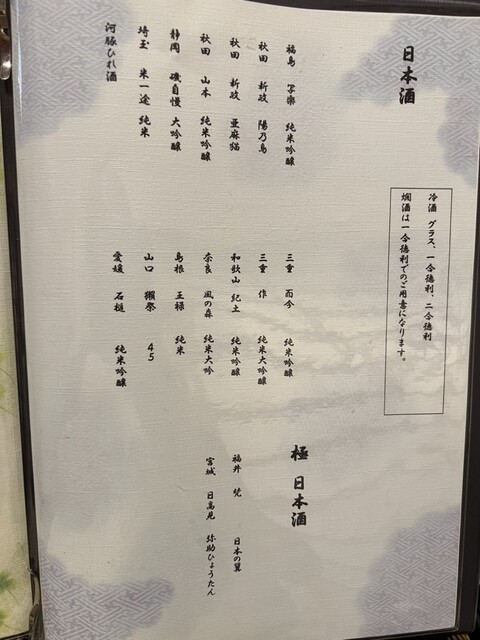 日本酒
冷酒 グラス、一合徳利、二合徳利
燗酒は一合徳利でのご用意になります。
福島 写楽 純米吟醸
秋田 新政 陽乃鳥
秋田 新政 亜麻猫
秋田 山本 純米吟醸
静岡 磯自慢 大吟醸
埼玉 米一途 純米
河豚ひれ酒
三重 而今 純米吟醸
三重 作 純米大吟醸
和歌山 紀土 純米吟醸
奈良 風の森 純米大吟
島根 王禄 純米
山口 獺祭 45
愛媛 石鎚 純米吟醸
極 日本酒
福井 梵 日本の翼
宮城 日高見 弥助ひょうたん